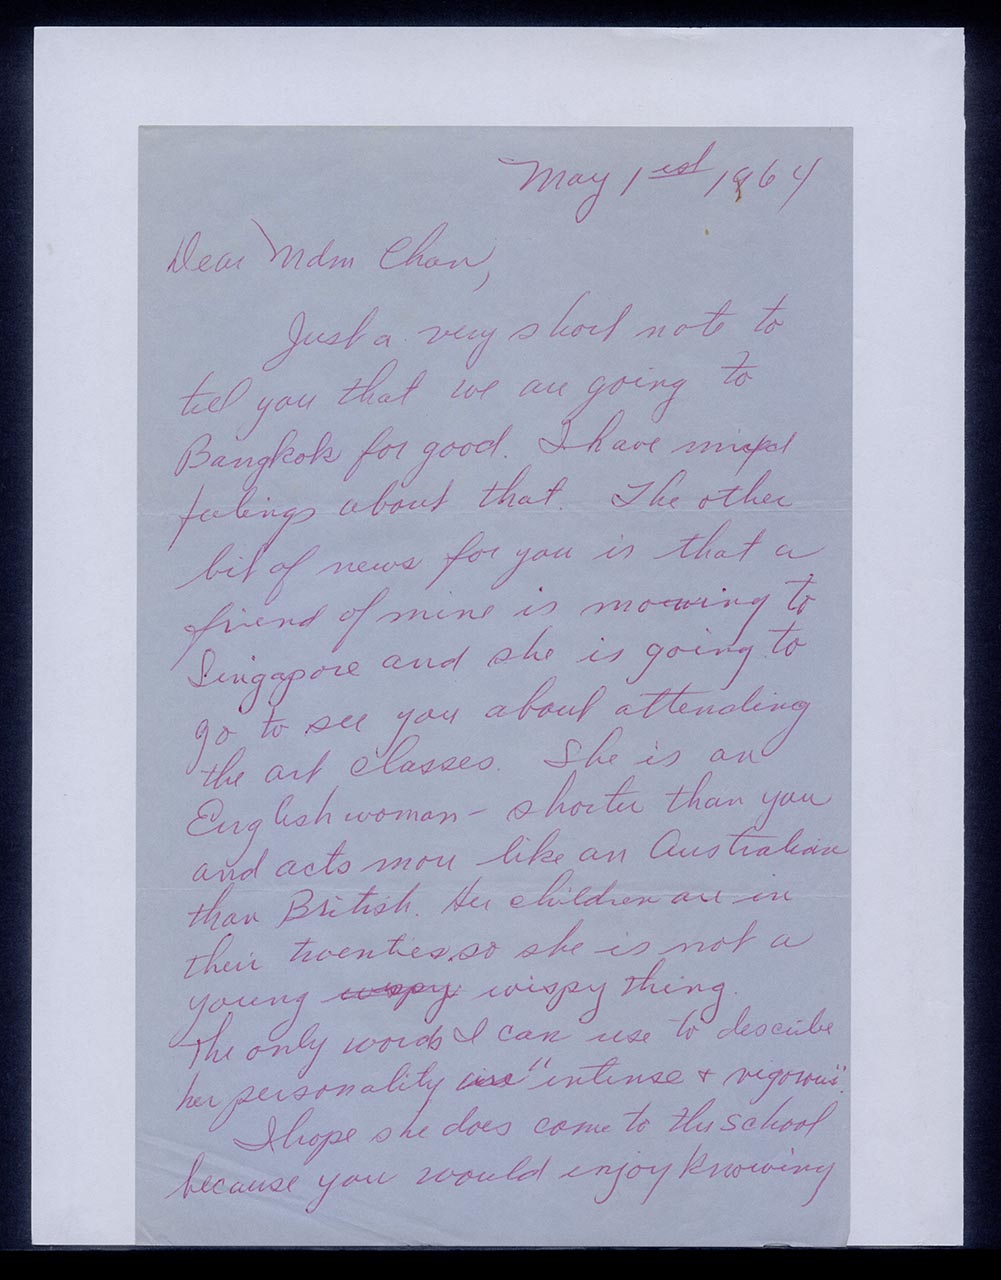 May 1st 1964
Dear Mdm Chan,
Just a very short note to
tell you that we are going to
Bangkok for good. I have mixed
feelings about that. The other
bit of news for you is that a
friend of mine is moving to
Singapore and she is going to
go to see you about attending
the art classes. She is an
English woman - shorter than you
and acts more like an Australian
than British. Her children are in
their twenties, so she is not a
young wispy wispy thing.
The only words I can use to describe
her personality are "intense + vigorous".
I hope she does come to the school
because you would enjoy knowing